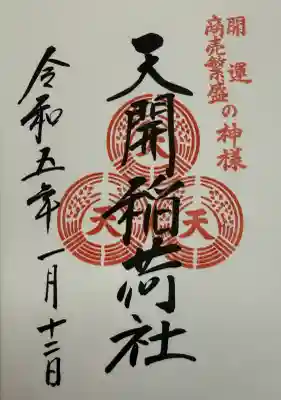 開運
商売繁盛の神様
天開稲荷社
天
天
天
令和五年一月十二日